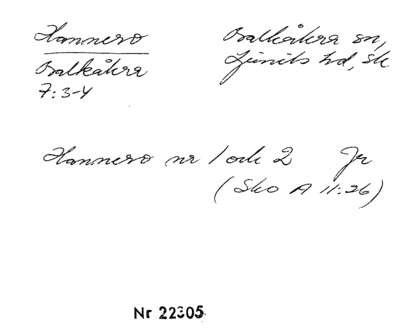 Hannero
Balkåkra
7:3-4
Balkåkra sn,
Ljunits hd, Sk
Hannero nr 1 och 2 Jr
(Sko A 11:26)
Nr 22305